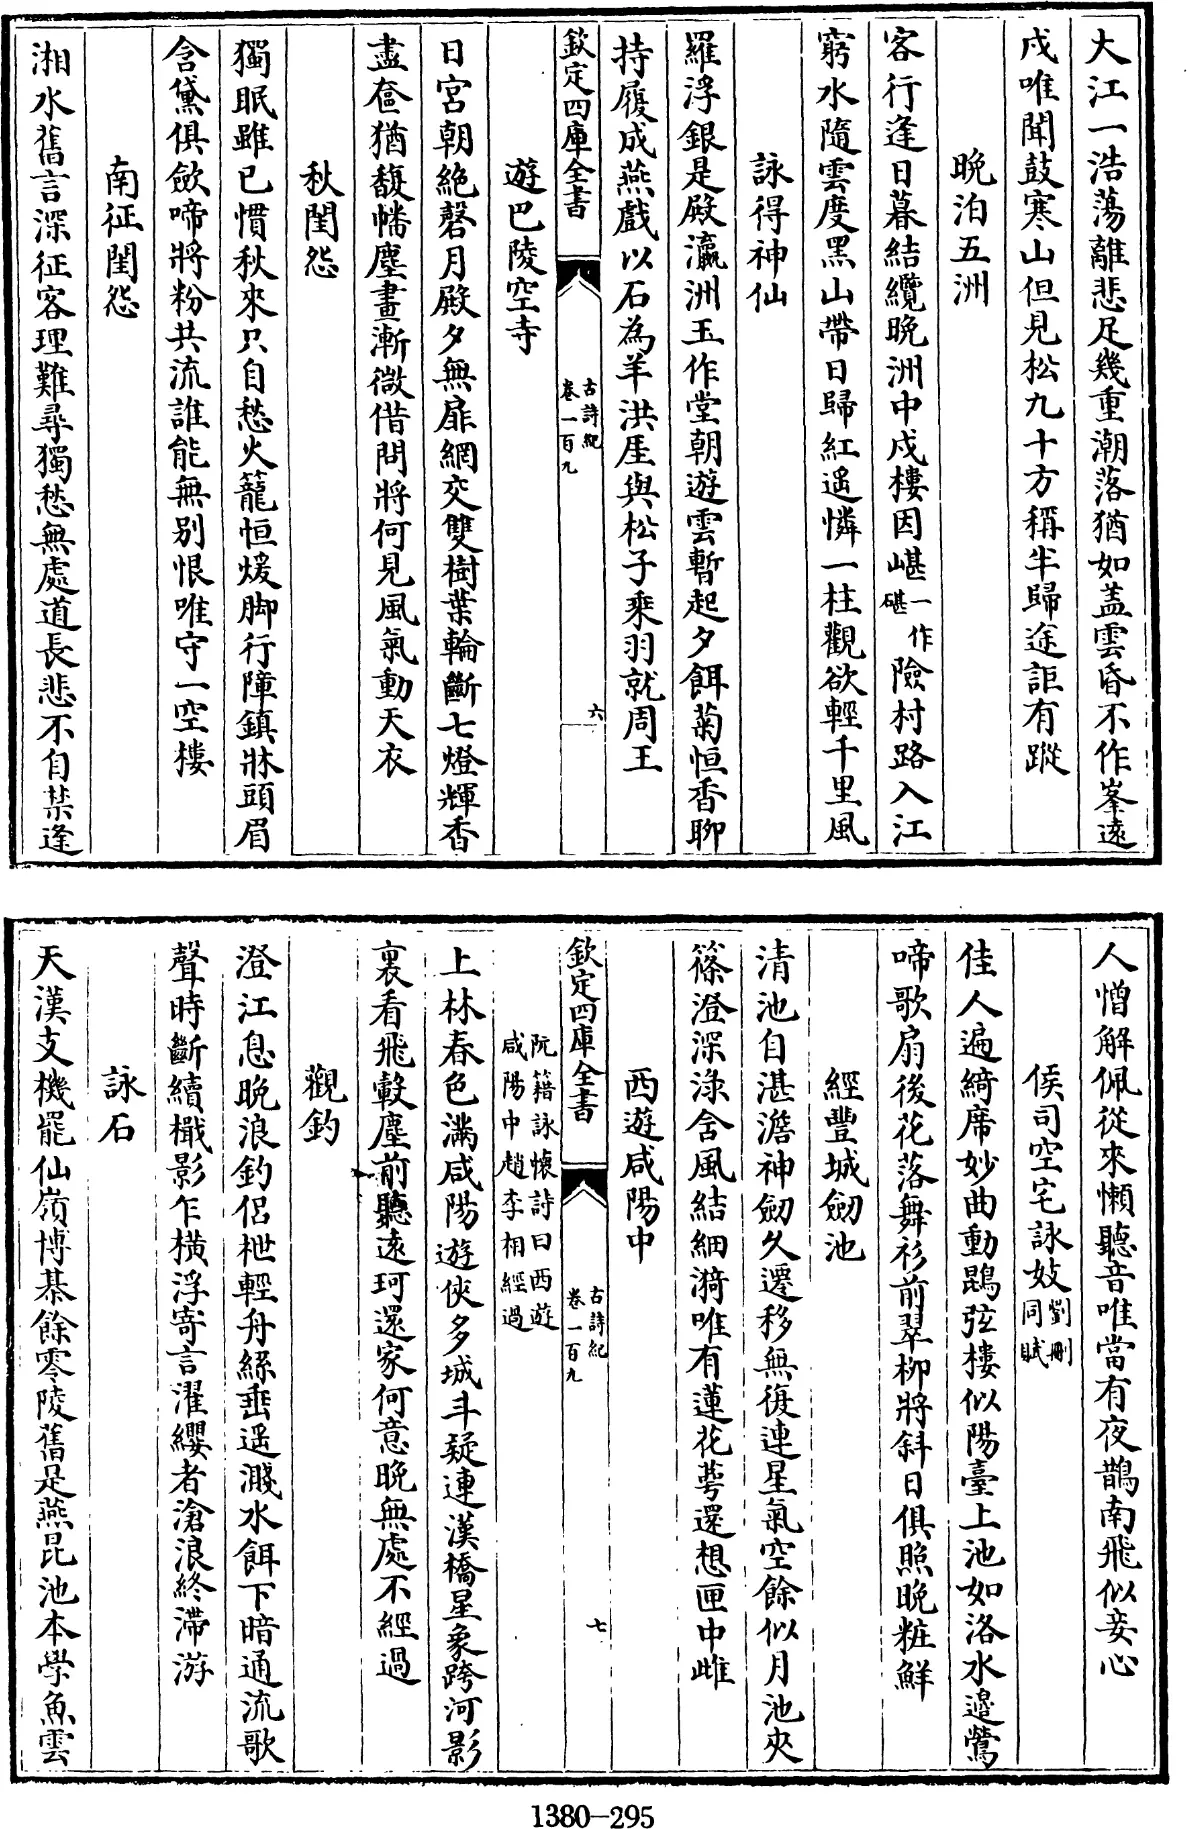 大江一浩蕩離悲足幾重潮落猶如蓋雲昏不作峯遠
戍唯聞鼓寒山但見松九十方稱半歸途詎有蹤
晚泊五洲
客行逢日暮結纜晚洲中戍樓因嵁一作碪險村路入江
窮水隨雲度黑山帶日歸紅遥憐一柱觀欲輕千里風
詠得神仙
羅浮銀是殿瀛洲玉作堂朝遊雲暫起夕餌菊恒香聊
持履成燕戲以石為羊洪厓與松子乘羽就周王
欽定四庫全書
古詩紀
卷一百九
六
遊巴陵空寺
日宮朝絶磬月殿夕無扉網交雙樹葉輪斷七燈輝香
盡奩猶馥幡塵畫漸微借問將何見風氣動天衣
秋閨怨
獨眠雖已慣秋來只自愁火籠恒煖脚行障鎮牀頭眉
含黛俱斂啼將粉共流誰能無别恨唯守一空樓
南征閨怨
湘水舊言深征客理難尋獨愁無處道長悲不自禁逢
人憎解佩從來懶聽音唯當有夜鵲南飛似妾心
侯司空宅詠妓劉刪同賦
佳人遍綺席妙曲動鵾弦樓似陽臺上池如洛水邉鶯
啼歌扇後花落舞衫前翠柳將斜日俱照晚粧鮮
經豐城劒池
清池自湛澹神劒久遷移無復連星氣空餘似月池夾
篠澄深淥含風結細漪唯有蓮花萼還想匣中雌
西遊咸陽中
阮籍詠懷詩曰西遊
咸陽中趙李相經過
欽定四庫全書
古詩紀
卷一百九
七
上林春色滿咸陽遊俠多城斗疑連漢橋星象跨河影
裏看飛轂塵前聽逺珂還家何意晚無處不經過
觀釣
澄江息晚浪釣侣枻輕舟絲垂遥濺水餌下暗通流歌
聲時斷續檝影乍横浮寄言濯纓者滄浪終滯游
詠石
天漢支機罷仙嶺博棊餘零陵舊是燕昆池本學魚雲
1380-295